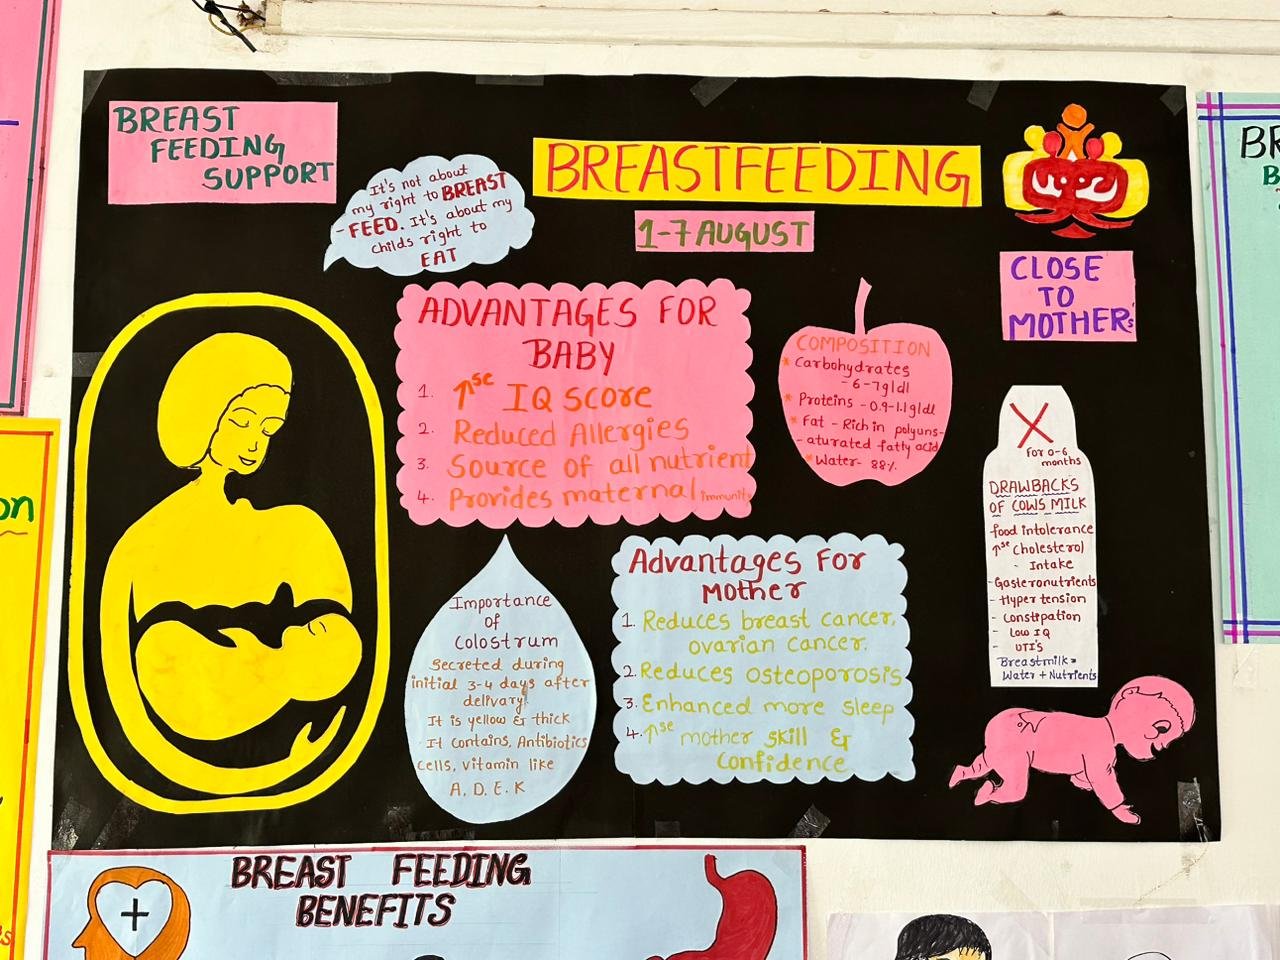 BREAST
FEEDING
SUPPORT
It's not about
my right to BREAST
-FEED. It's about my
childs right to
EAT
BREASTFEEDING
1-7 AUGUST
CLOSE
TO
MOTHER's
ADVANTAGES FOR
BABY
1. ↑se IQ SCORE
2. Reduced Allergies
3. Source of all nutrient
4. Provides maternal immunity
COMPOSITION
* Carbohydrates
- 6-7g|dl
* Proteins - 0.9-1.1g|dl
* Fat - Rich in polyuns-
- aturated fatty acid
* Water- 88%
X
For 0-6
months
DRAWBACKS
OF COWS MILK
food intolerance
↑se Cholesterol
- Intake
- Gasteronutrients
- Hyper tension
- Constipation
- Low IQ
- UTI'S
Breastmilk =
Water + Nutrients
Importance
of
Colostrum
Secreted during
initial 3-4 days after
delivary
It is yellow & thick
It contains, Antibiotics
cells, vitamin like
A, D, E, K
Advantages For
Mother
1. Reduces breast cancer,
ovarian cancer.
2. Reduces osteoporosis
3. Enhanced more sleep
4. ↑se mother skill &
Confidence
BREAST FEEDING
BENEFITS
on
BR